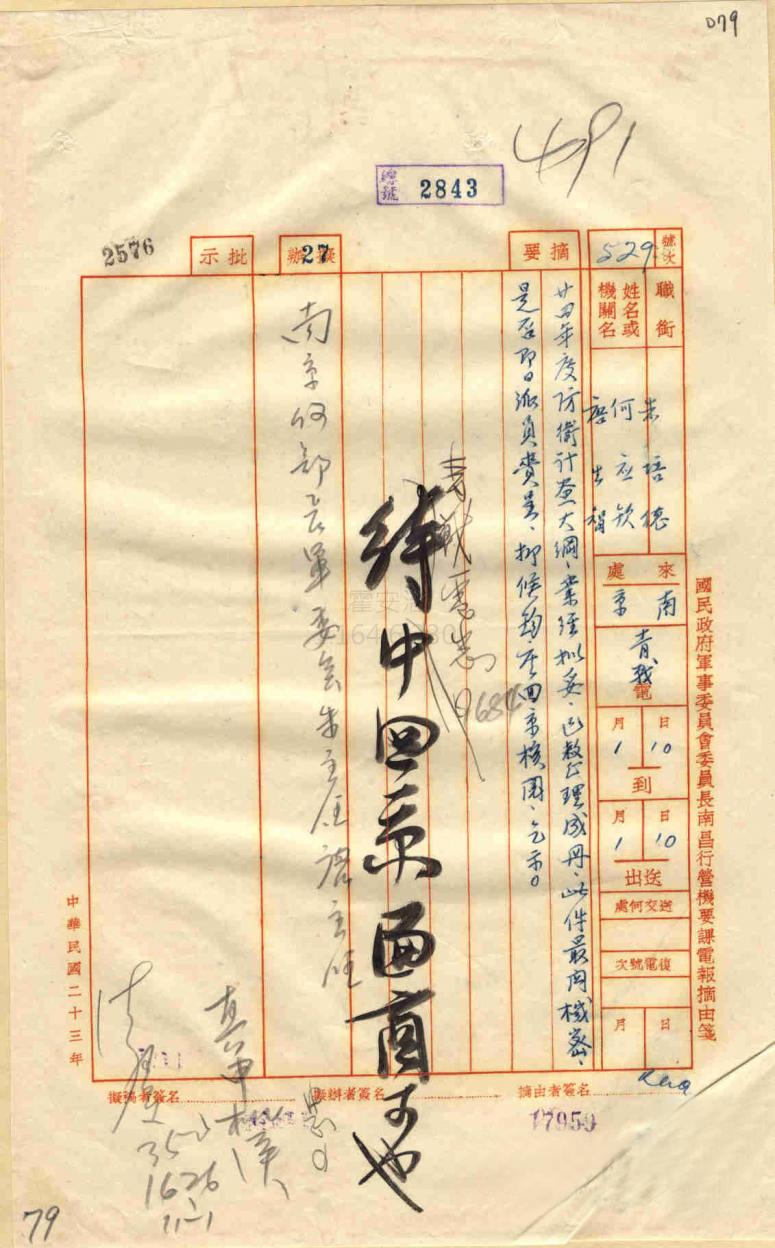 079
491
總號 2843
2576
國民政府軍事委員會委員長南昌行營機要課電報摘由箋
號次
529
職銜
姓名或機關名
朱培德
何應欽
唐生智
來處
南京
青戌電
1月10日
到
1月10日
送出
送交何處
復電號次
月 日
摘要
廿四年度防衛計畫大綱、業經擬妥、正敬正理成冊、此件最関機密、
是否即日派員賫呈、抑候鈞座回京核閱、乞示。
擬辦
27
南京何部長軍委會朱主任唐主任
青戌電悉
9684
待中回京面商可也
批示
中華民國二十三年
摘由者簽名
擬辦者簽名
擬稿者簽名
17959
3521
1626
11-1
79